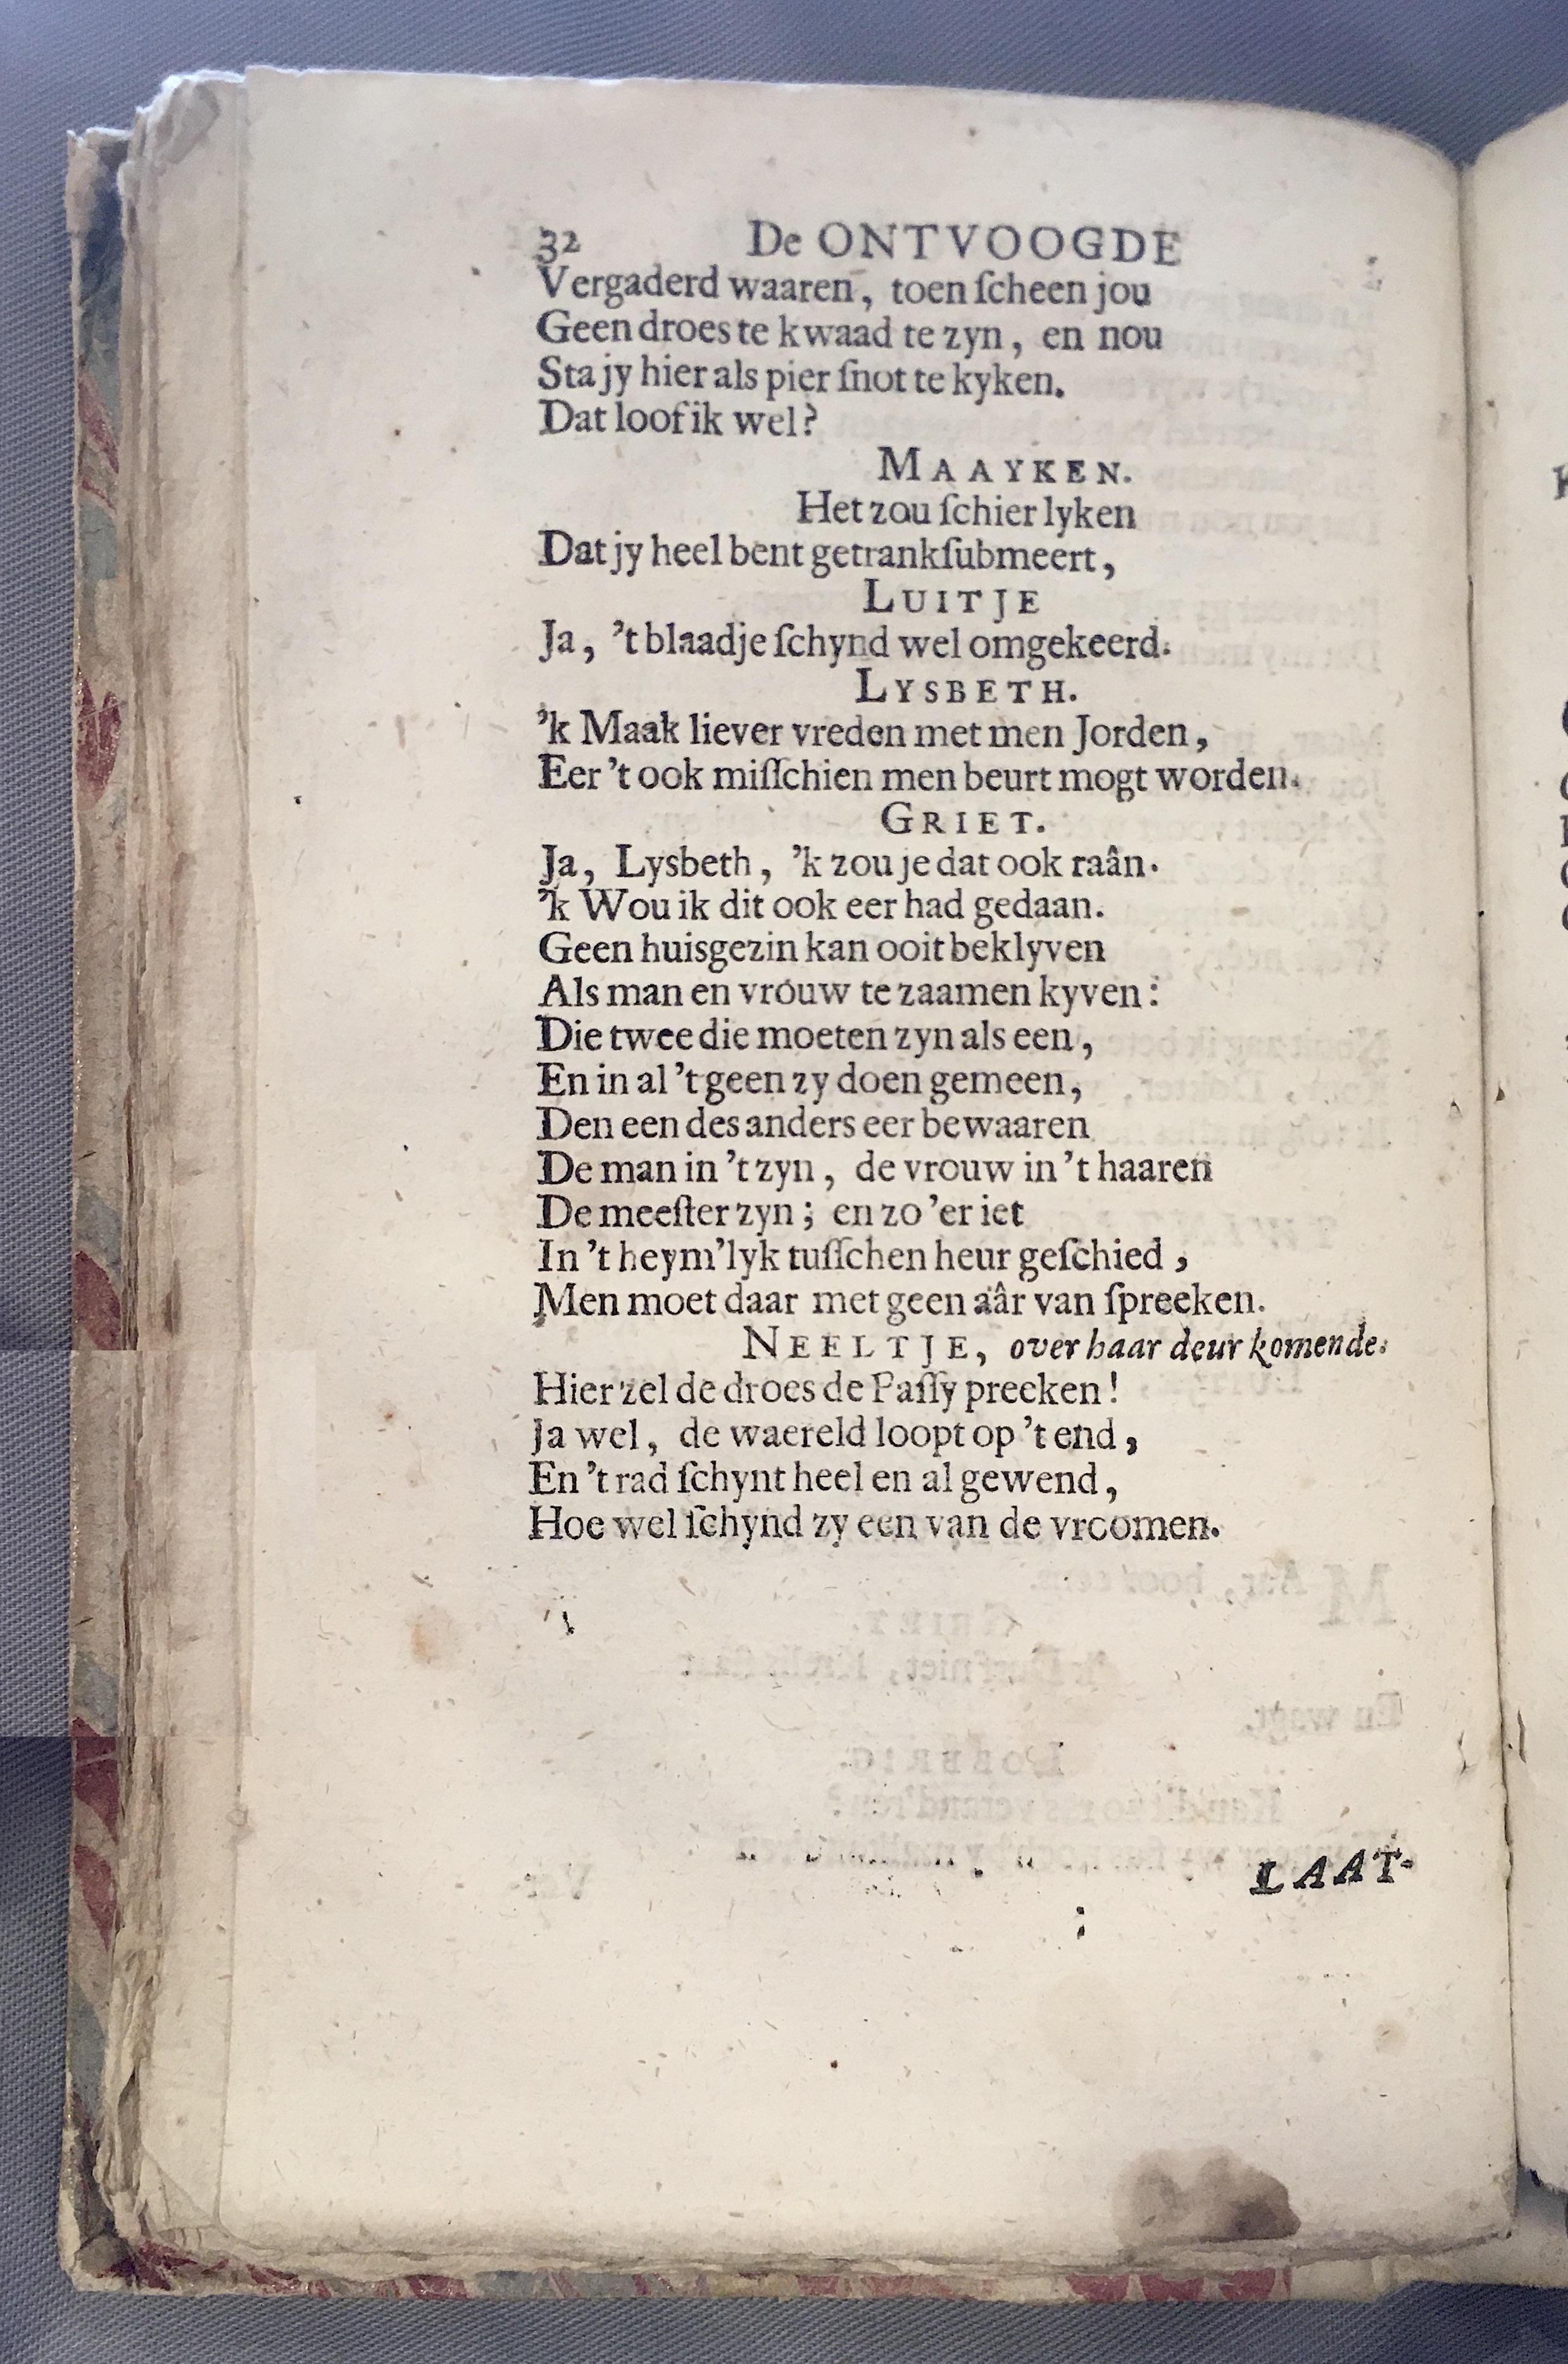 32 De ONTVOOGDE
Vergaderd waaren, toen ſcheen jou
Geen droes te kwaad te zyn, en nou
Sta jy hier als pier ſnot te kyken.
Dat loof ik wel?
MAAYKEN.
Het zou ſchier lyken
Dat jy heel bent getrankſubmeert,
LUITJE
Ja, 't blaadje ſchynd wel omgekeerd.
LYSBETH.
'k Maak liever vreden met men Jorden,
Eer 't ook miſſchien men beurt mogt worden.
GRIET.
Ja, Lysbeth, 'k zou je dat ook raân.
'k Wou ik dit ook eer had gedaan.
Geen huisgezin kan ooit beklyven
Als man en vrouw te zaamen kyven:
Die twee die moeten zyn als een,
En in al 't geen zy doen gemeen,
Den een des anders eer bewaaren
De man in 't zyn, de vrouw in 't haaren
De meeſter zyn; en zo 'er iet
In 't heym'lyk tuſſchen heur geſchied,
Men moet daar met geen aâr van ſpreeken.
NEELTJE, over haar deur komende.
Hier zel de droes de Paſſy preeken!
Ja wel, de waereld loopt op 't end,
En 't rad ſchynt heel en al gewend,
Hoe wel ſchynd zy een van de vroomen.
LAAT-